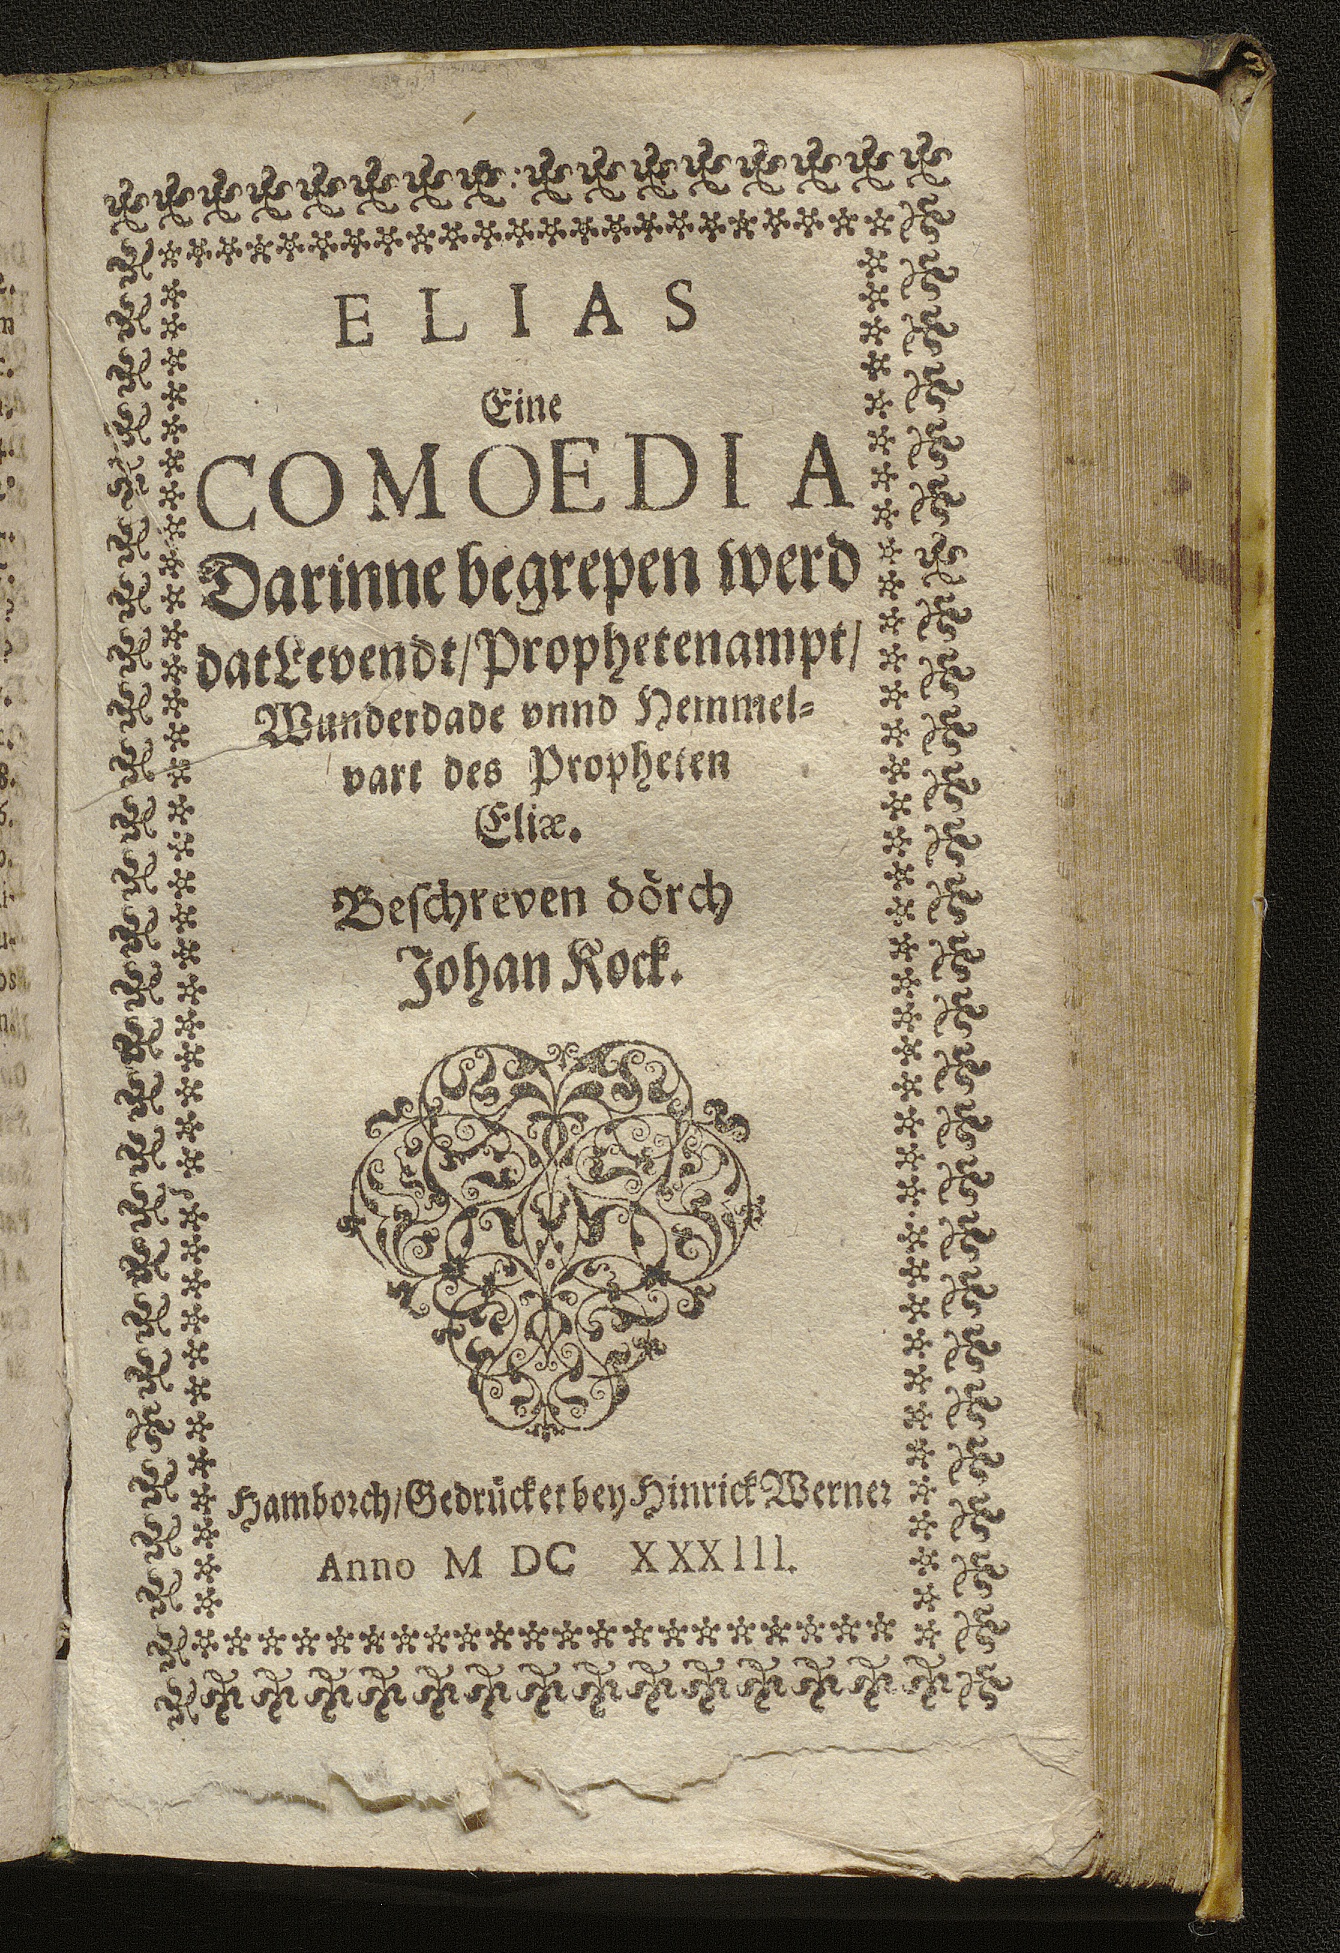 ELIAS
Eine
COMOEDIA
Darinne begrepen werd
dat Levendt/Prophetenampt/
Wunderdade vnnd Hemmel⸗
vart des Propheten
Eliæ.
Beschreven dörch
Johan Kock.
Hamborch/Gedrücket bey Hinrick Werner
Anno M DC XXXIII.